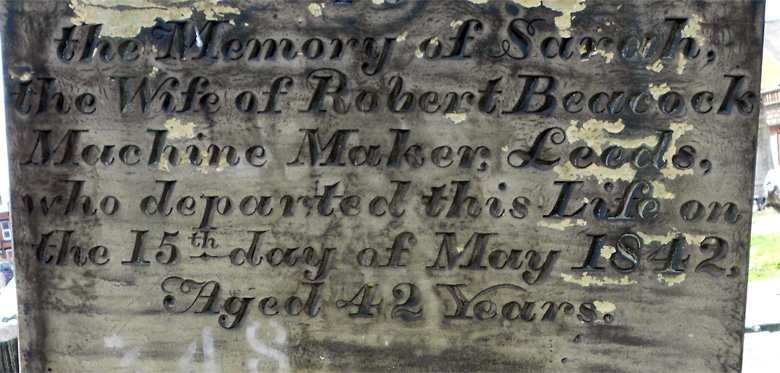 the Memory of Sarah,
the Wife of Robert Beacock
Machine Maker, Leeds,
who departed this Life on
the 15th day of May 1842,
Aged 42 Years.
348